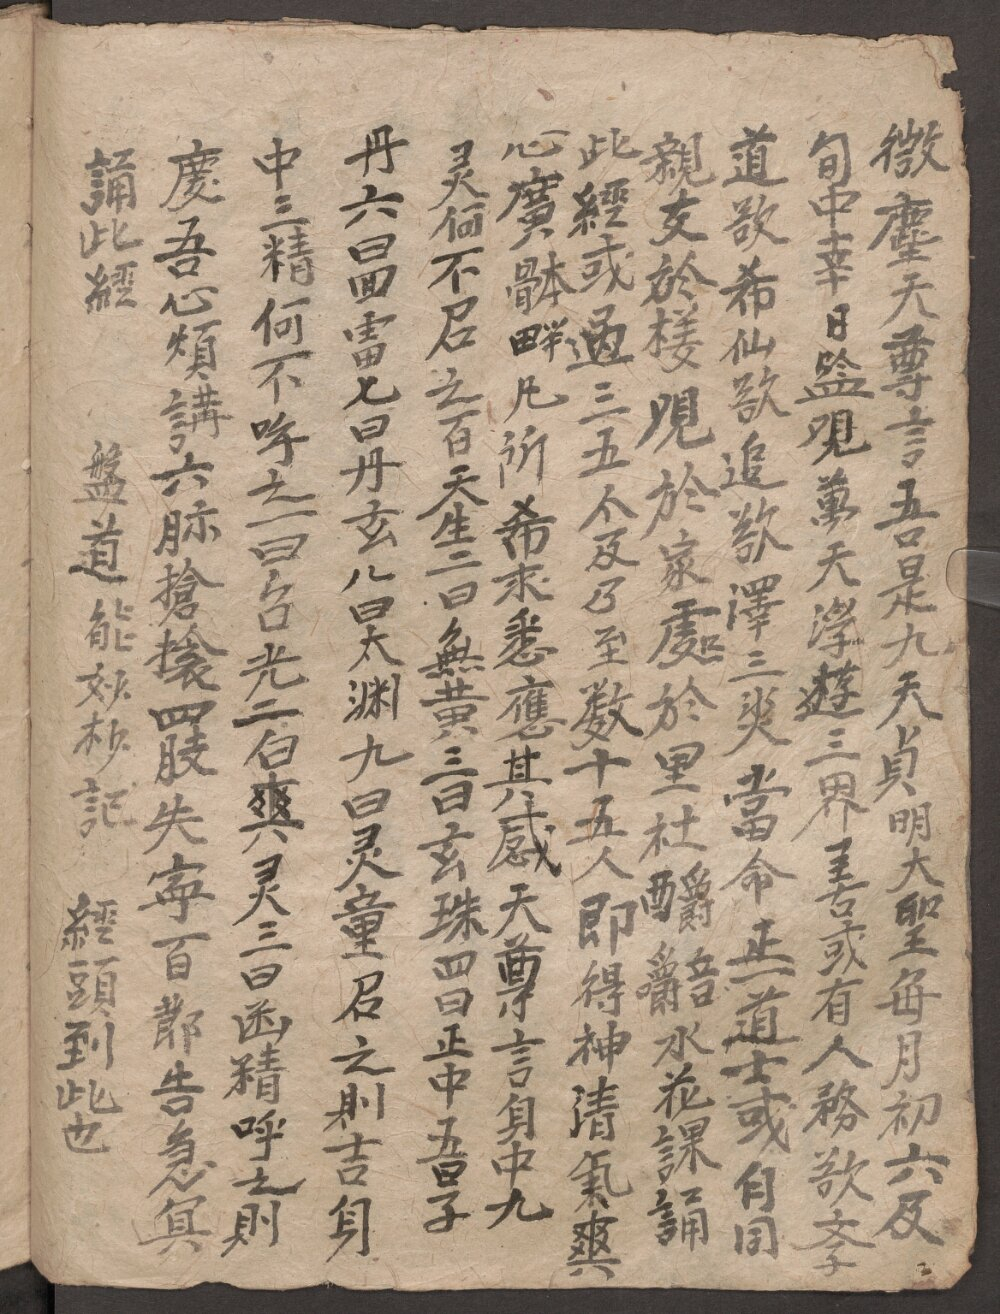 微塵天尊言吾是九天貞明大聖每月初六及
旬中辛日監观萬天浮遊三界善或有人務欲孝
道欲希仙欲追欲澤三災當命正一道士或自同
親友於楼观於家處於里社酹爵水花課誦
此經或過三五不及乃至数十五人即得神清氣爽
心廣骵畔凡所希求悉應其感天尊言身中九
灵何不召之百天生二曰無黄三曰玄珠四曰正中五曰子
丹六曰回雷七曰丹玄八曰太渊九曰灵童召之則吉身
中三精何不呼之一曰台光二白爽灵三曰函精呼之則
慶吾心煩講六脉搶擾四肢失寧百節告急宜
誦此經　盤道能妙抄記　經頭到此也